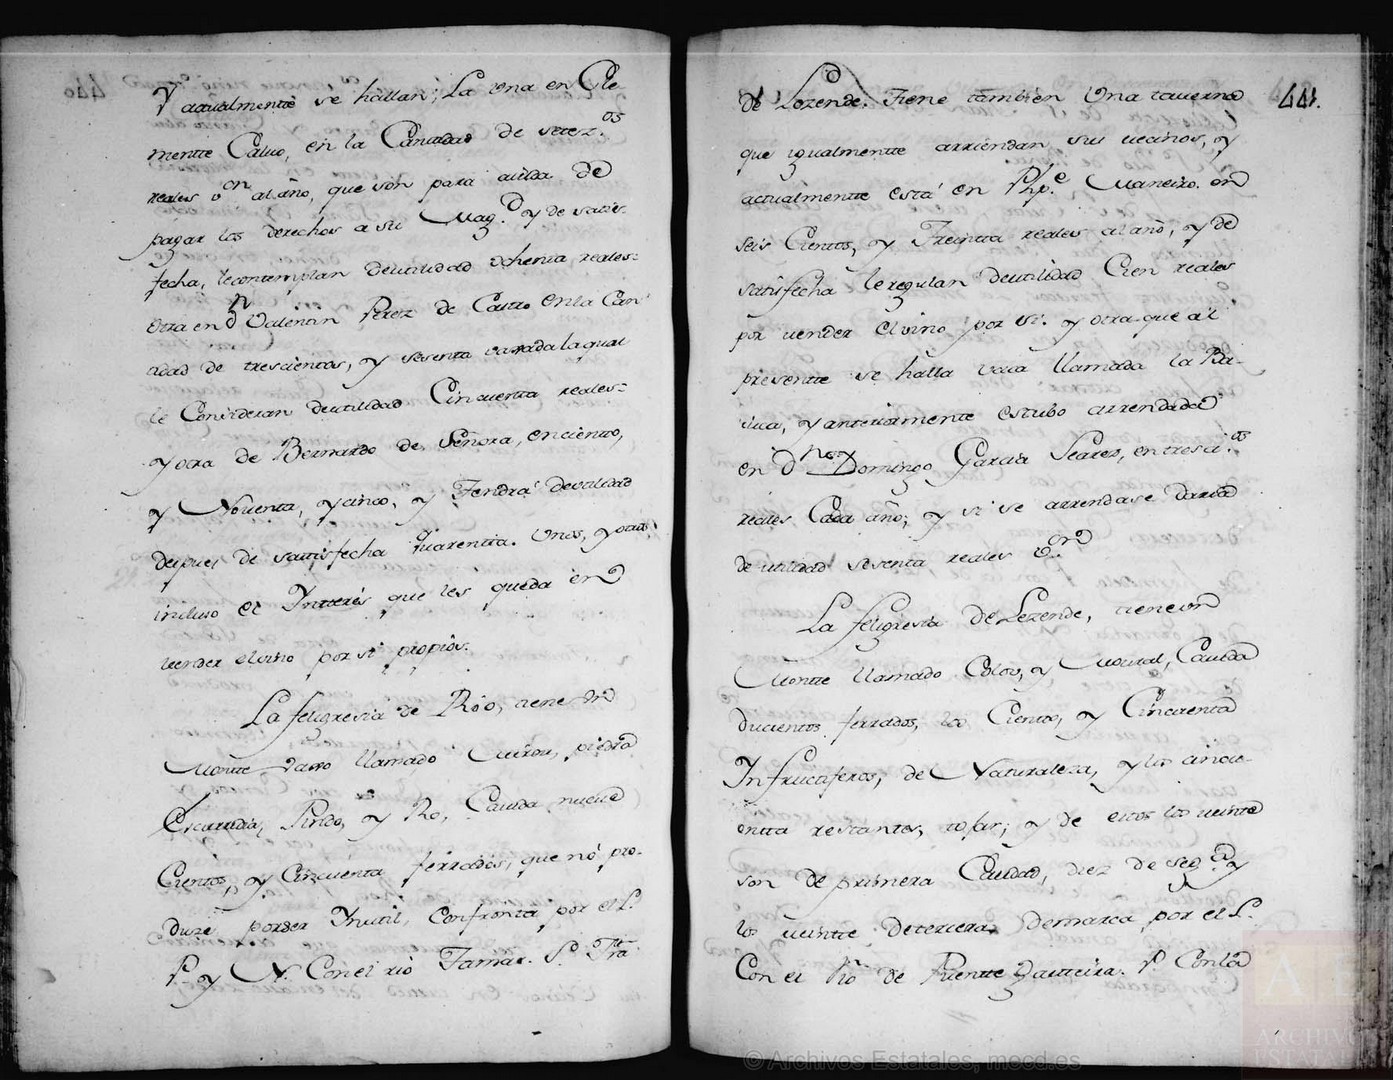 Y actualmente se hallan; La una en Cle-
mentte Calvo, en la Cantidad de setez.os
reales v.on al año, que son para aiuda de
pagar los derechos a su Mag.d y de satis-
fecha, le contemplan de utilidad ochenta reales=
Otra en d.n Valentin Perez de Castro en la Can-
tidad de trescientos, y sesenta cada la qual
le Consideran de utilidad Cinquenta reales=
y otra de Bernardo de Señora, en ciento,
y Noventa, y cinco, y Tendrá de utilidad
despues de sattisfecha quarentta. Unos, y otros
incluso el Intterés que les queda en
vender el vino por sí propios.
La feligresia de Róo, tiene un
Montte llamado piedra
Escurridia, Pindo, y Ro, Cavida nueve
Cientos, y Cinquenta ferrados, que nó pro-
duze por ser Inutil, Confronta por el L.
P. y N. Con el rio Tamar. S. Trá
441.
de Lozende. Tiene tambien Una taverna
que igualmentte arriendan sus vecinos, y
actualmente está en Phe.e Maneiro en
seis Cientos, y Treintta reales al año, y de
satisfecha le regulan de utilidad Cien reales
por vender el vino por sí. y otra que al
presentte se halla vaca llamada la Ra-
y anteriormente estubo arrendada
en d.n Domingo Garcia Seares, en tresci.os
reales Cada año; y si se arrendase daria
de utilidad sesenta reales v.on
La feligresia de Lozende, tiene un
Montte llamado Colou, y Moural, Cavida
ducientos ferrados, los Ciento, y Cincuenta
Infructiferos, de Naturaleza, y los cincu-
entta restantes, tojar; y de estos los veinte
son de primera Calidad, diez de seg.da y
los veintte de tercera, Demarca por el L.
Con el Rio de Puentte Gautteira. P. Con la
© Archivos Estatales, mecd.es
AE
ARCHIVOS
ESTATALES